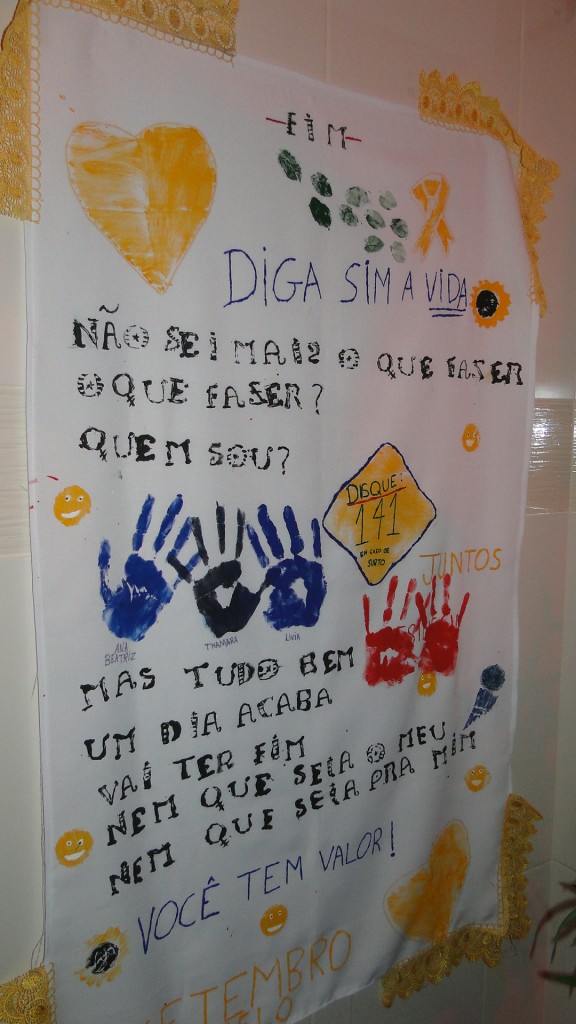 FiM
DiGA SiM A VIDA
NÃO SEI MAIS O QUE FASER
O QUE FASER?
QUEM SOU?
DISQUE:
141
EM CASO DE
SURTO
JUNTOS
ANA
BEATRIZ
THAMARA
LIVIA
MAS TUDO BEM
UM DIA ACABA
VAI TER FIM
NEM QUE SEIA O MEU
NEM QUE SEIA PRA MIM
VOCÊ TEM VALOR!
SETEMBRO